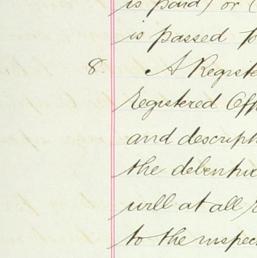 is paid) or (
is passed
8. A Regist
registered Off
and descript
the debentu
will at all
to the inspec